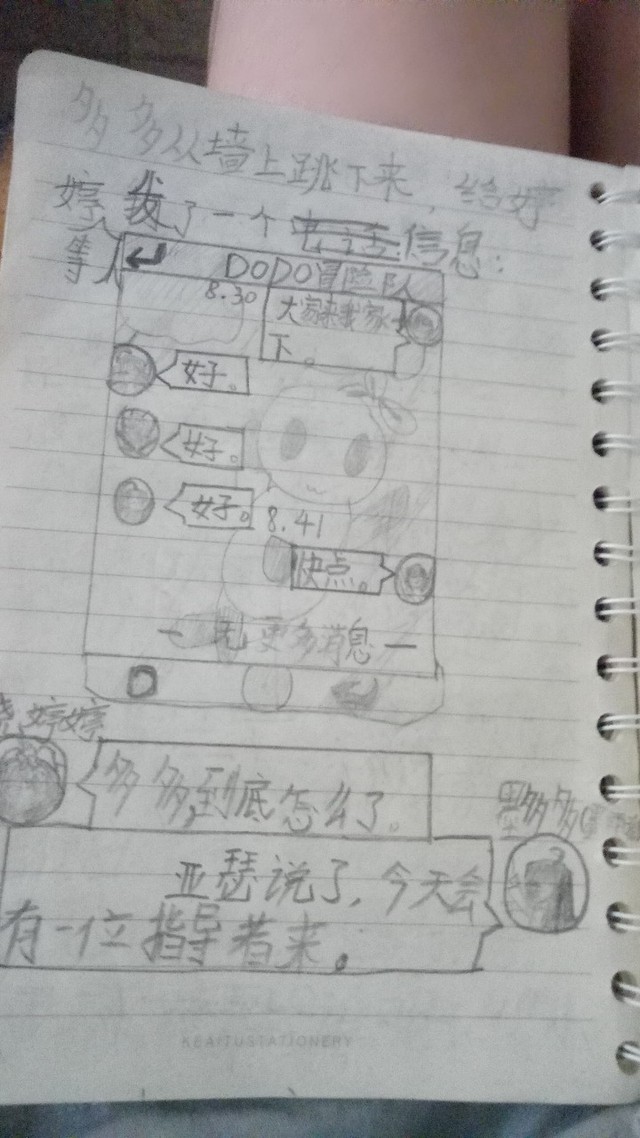 多多从墙上跳下来，给婷
婷发了一个电话信息：
等人
DODO冒险队
8.30
大家来我家
下。
好。
好。
好。
8.41
快点。
一无更多消息一
婷婷
多多,到底怎么了。
墨多多
亚瑟说了,今天会
有一位指导者来。
KEAITUSTATIONERY